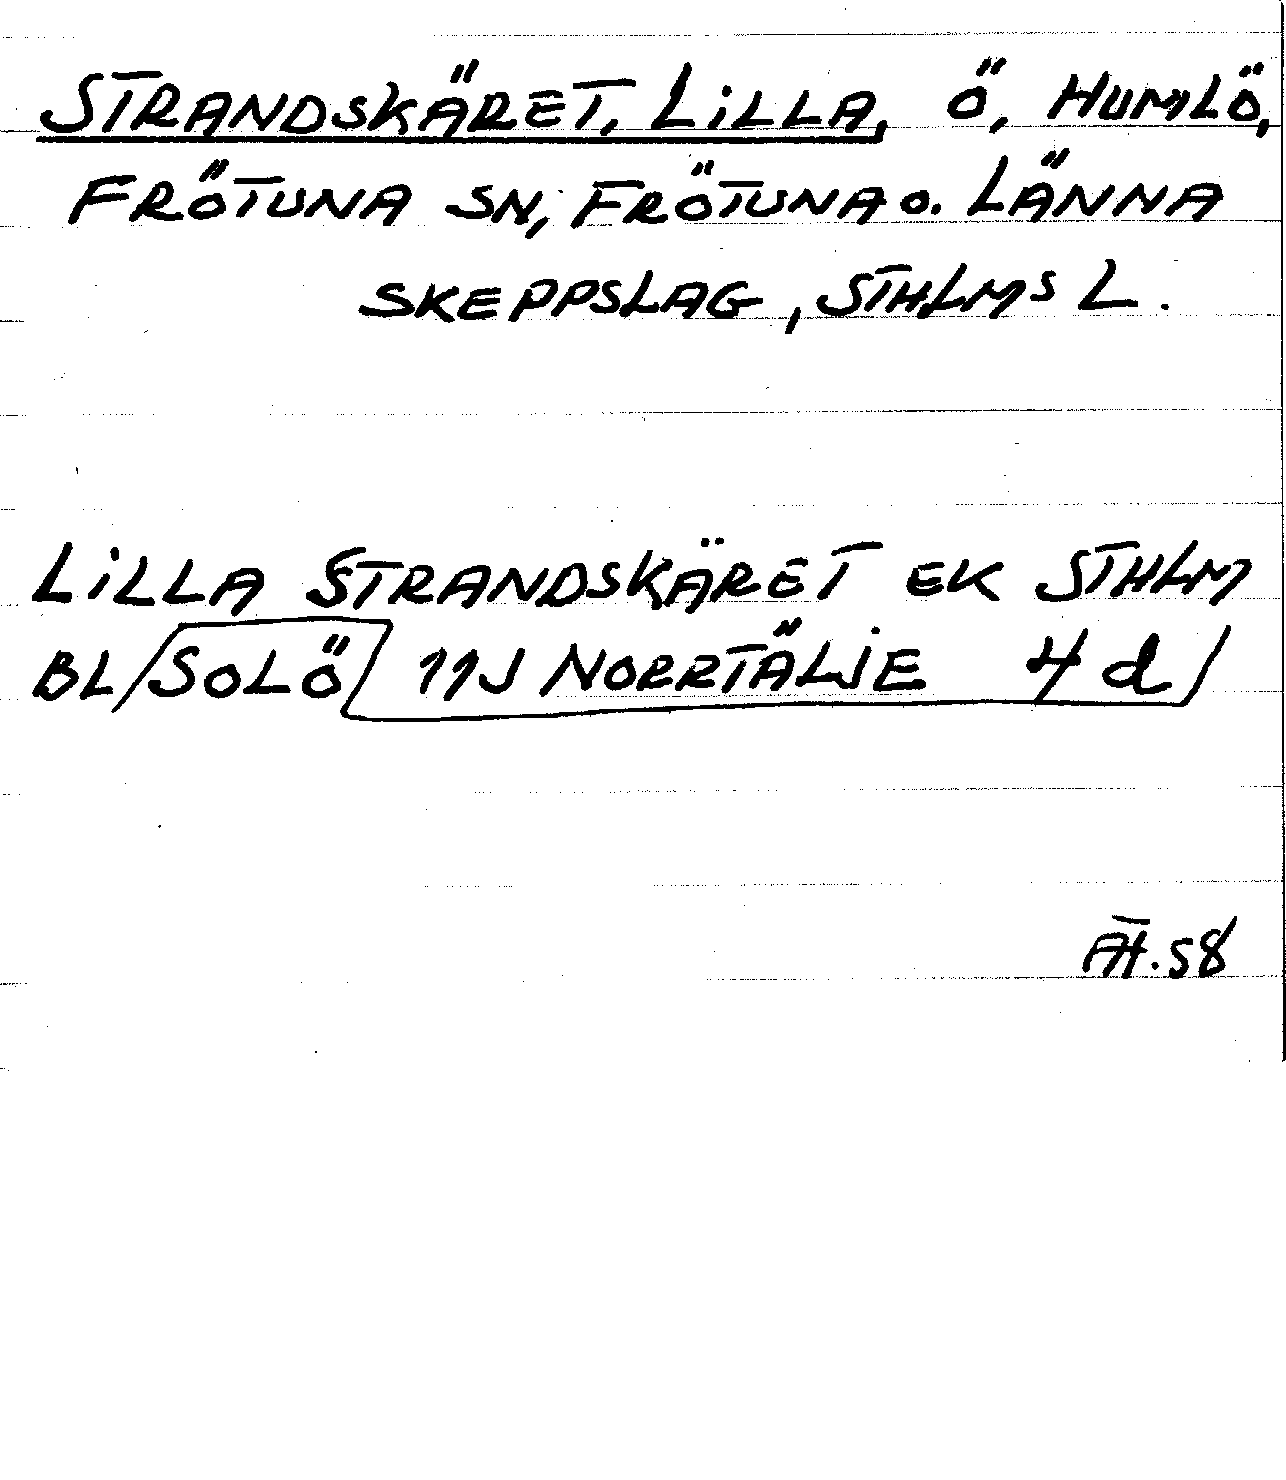 STRANDSKÄRET, LILLA, Ö, HUMLÖ,
FRÖTUNA SN, FRÖTUNA o. LÄNNA
SKEPPSLAG, STHLMS L.
LILLA STRANDSKÄRET EK STHLM
BL/SOLÖ/ 11J NORRTÄLJE 4 d/
ÄH. 58